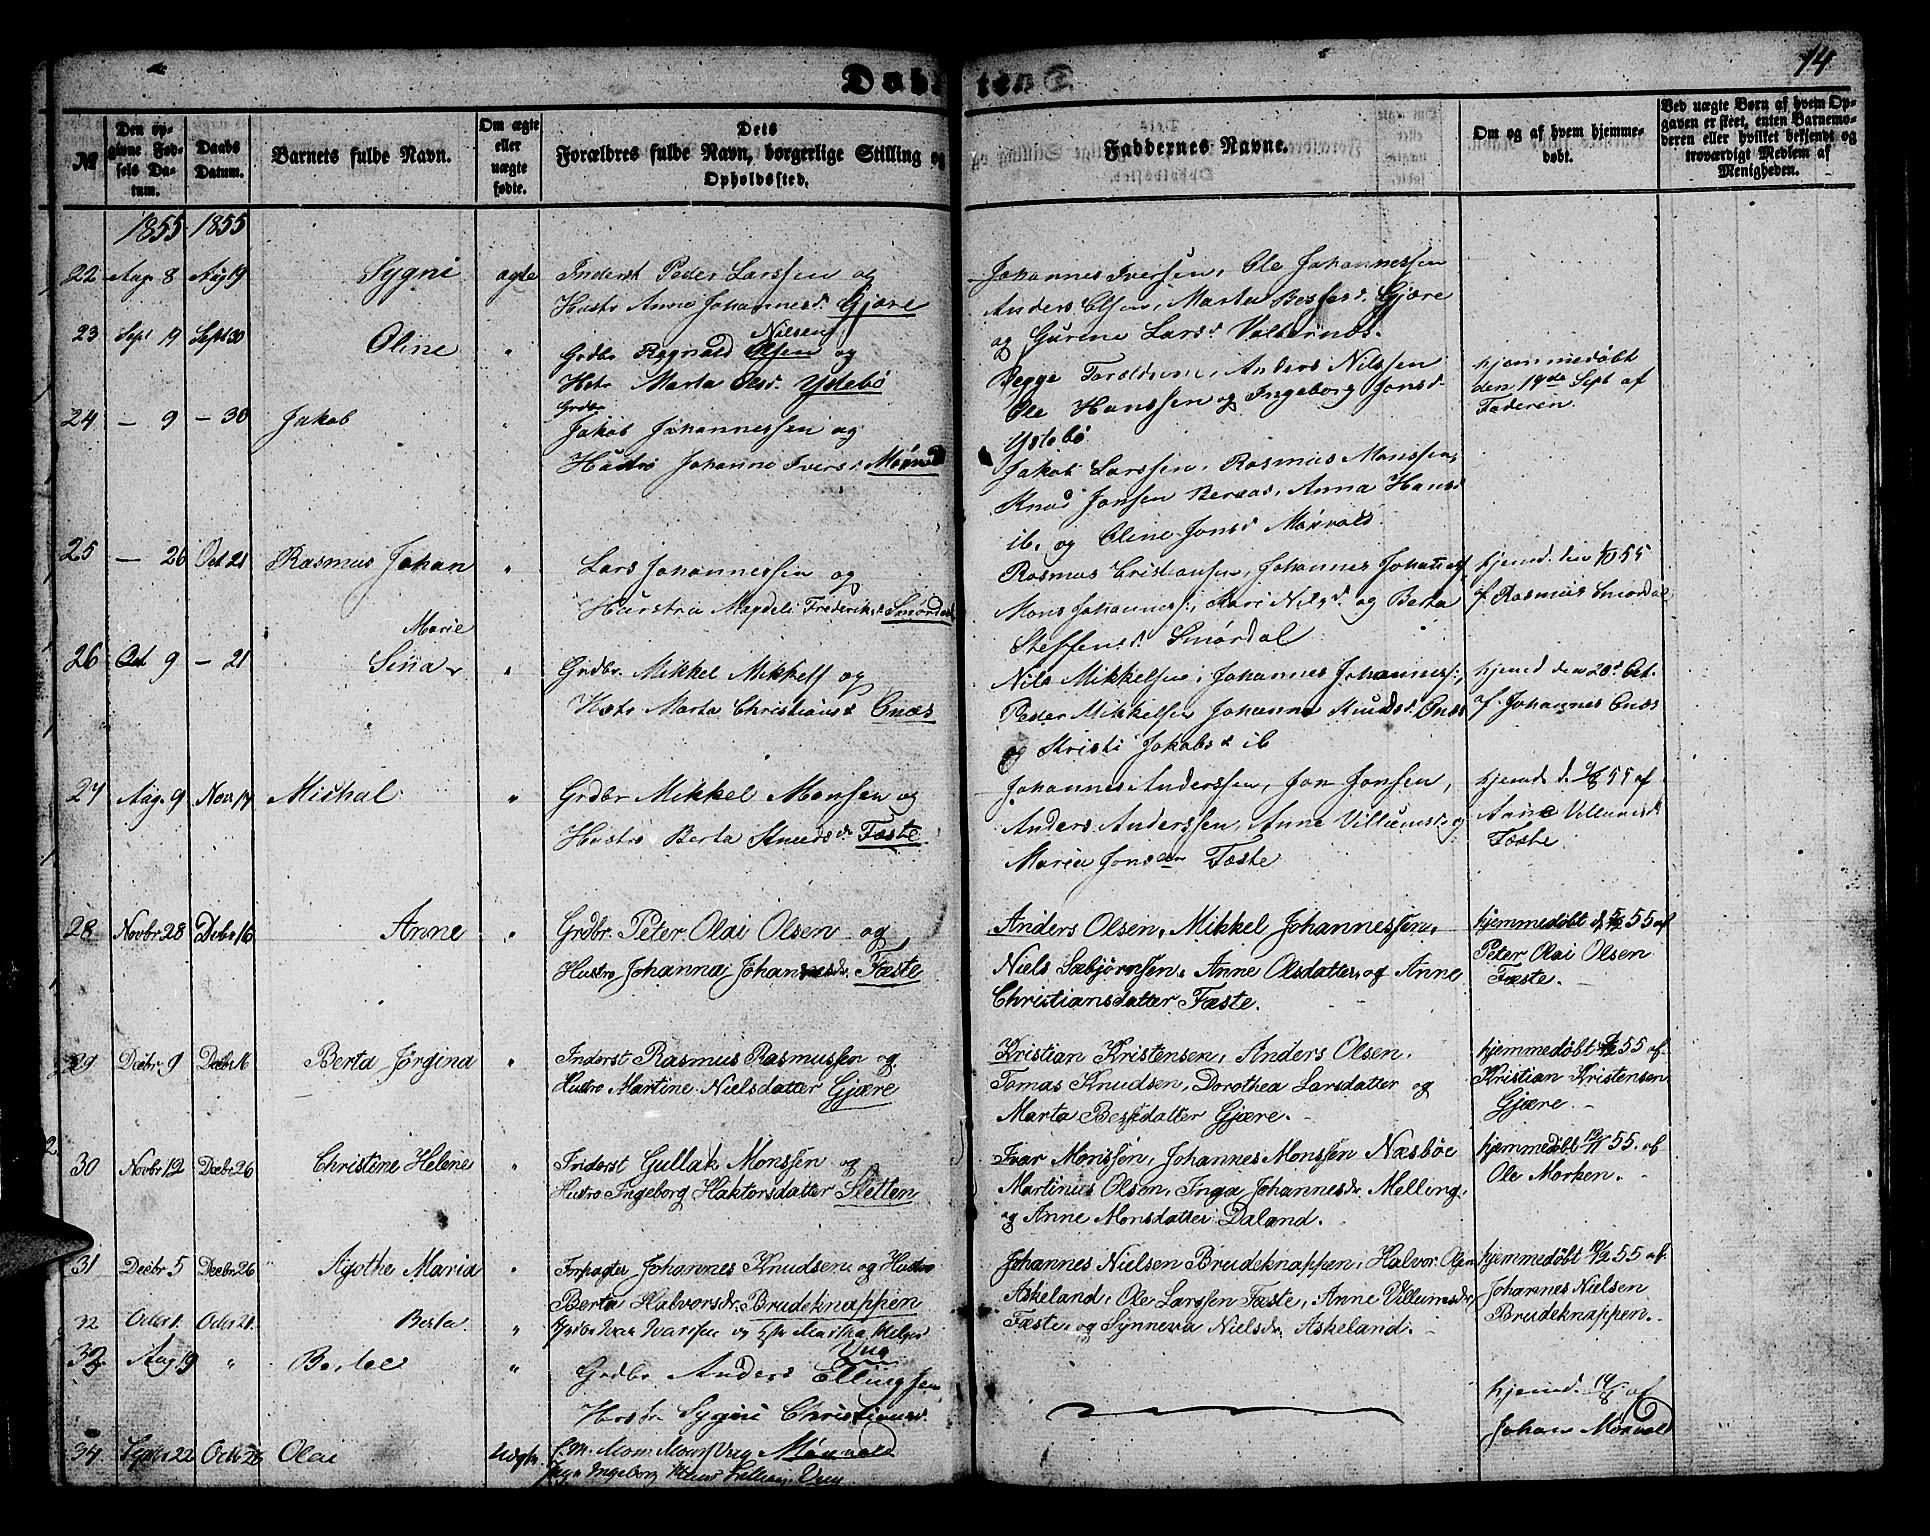 14
Døbte
No
Den opgivne Fødsels Datum.
Daabs Datum.
Barnets fulde Navn.
Om ægte eller uægte fødte.
Dets Forældres fulde Navn, borgerlige Stilling og Opholdssted.
Faddernes Navne.
Om og af hvem hjemmedøbt.
Ved uægte Børn af hvem Opgaven er skeet, enten Barnemoderen eller hvilket bekjendt og troværdigt Medlem af Menigheden.
1855 1855
22 Aug. 8 Aug 19 Sygni ægte Inderst Peder Larssen og
Hustr Anne Johannesd. Gjære
Johannes Iversen, Ole Johannessen
Anders Olsen, Marta Besses d. Gjære
og Gurine Lars d.
23 Sept 19 Sept 30 Oline " Grdbr Ragnald Olsen Nilsen og
Hstr Marta Olsd. Ystebø
Begge Anders Nilssen
Ole Hanssen og Ingeborg Jonsd.
Ystebø
hjemmedøbt
den 19de Sept af
Faderen.
24 – 9 – 30 Jakob " Grdbr
Jakob Johannessen og
Hustro Johanne Ivers d.
Jakob Larssen, Rasmus Monssen,
Knud Jonsen Anna Hansd
ib. og Oline Jonsd Mørvold.
25 – 26 Oct 21 Rasmus Johan " Lars Johannessen og
Hustru Magdeli Frederiks d. Smørdal
Rasmus Cristiansen, Johannes
Mons Johanness., Kari Nilsd. og Berta
Steffensd. Smørdal
hjemd. den 1/10 55
af Rasmus Smørdal
26 Oct 9 – 21 Marie
Sina " Grdbr. Mikkel Mikkels og
Hstr Marta Christians d. Cnæs
Nils Mikkelsen, Johannes Johanness.,
Peder Mikkelsen Johanne Knudsd. Cnæs
og Kristi Jakobs d ib
hjemd den 20d Oct.
af Johannes Cnæs
27 Aug. 9 Nov. Michal " Grdbr Mikkel Monsen og
Hustro Berta Knudsdr Fæste
Johannes Anderssen, Jon Jonsen,
Anders Anderssen, Anne Villumsd. og
Maria Jonsdtr Fæste
hjemd. d. 9/8 55 af
Anne Villumsd.
Fæste
28 Novbr. 28 Debr 16 Anne " Grdbr. Peter Olai Olsen og
Hustro Johanna Johannesdr. Fæste
Anders Olsen, Mikkel Johannessen,
Niels Sæbjørnsen, Anne Olsdatter, og Anne
Christiansdatter Fæste.
hjemmedøbt d. 55 af
Peter Olai Olsen
Fæste.
29 Decbr 9 Decbr 16 Berta Jørgina " Inderst Rasmus Rasmussen og
Hustro Martine Nielsdatter Gjære
Kristian Kristensen, Anders Olsen,
Tomas Knudsen, Dorothea Larsdatter og
Marta Bessedatter Gjære.
hjemmedøbt 55 af
Kristian Kristensen
Gjære.
30 Novbr 12 Decbr 26 Christine Helene " Inderst Gullak Monssen og
Hustro Ingeborg Haktorsdatter Sletten
Ivar Monssen, Johannes Monssen Næsbøe
Martinus Olsen, Inga Johannesdr. Melling,
og Anne Monsdatter Daland.
hjemmedøbt 12/11 55. af
Ole Morken.
31 Decbr 5 Decbr 26 Agothe Maria " Forpagter Johannes Knudsen og Hustro
Berta Halvorsdr. Brudeknappen
Johannes Nielsen Brudeknappen, Halvor Olsen
Askeland, Ole Larssen Fæste, Anne Villumsdr
Fæste og Synneva Nielsdr. Askeland.
hjemmedøbt 55 af
Johannes Nielsen
Brudeknappen.
Octbr 1. Octbr 21. Berta. " Grdbr Ivar Ivarsen og Martha
33. Aug 19 " Bertel " Grdbr Anders Ellingsen
Hustr Sygni Christiansd.
hjemd. 19/8 af
Johan Mørvold
34. Septbr 22 Octbr 28 Olai Uægte Mørvold
Ingeborg